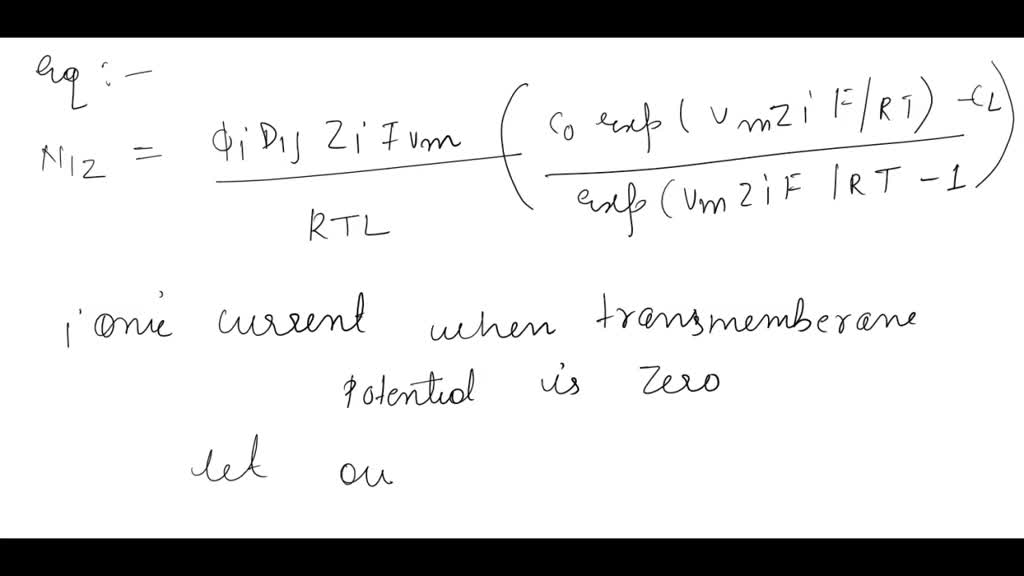 eq :-
N12 = ϕi Dij Zi F vm / RTL ( C0 exp ( Vm Zi F/RT) - CL / exp (Vm Zi F /RT - 1 )
ionic current when transmemberane
potential is zero
let ou